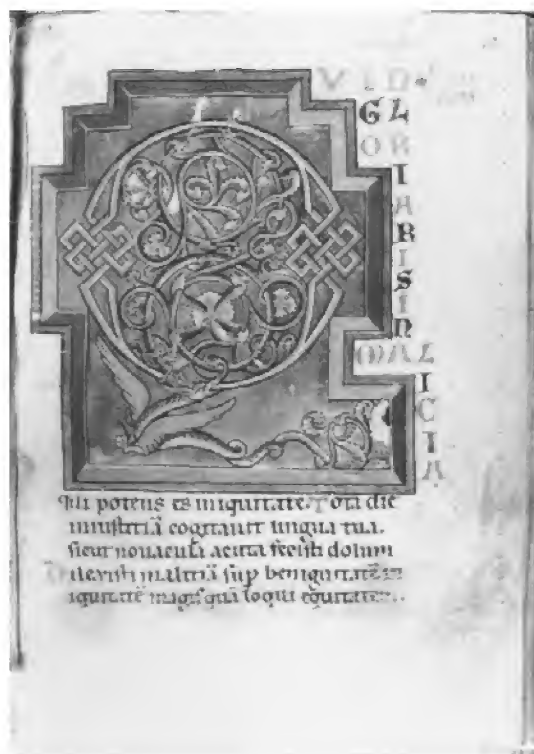 Q VID
GL
OR
I
A
R
I
S
I
N
MAL
I
C
I
A
Qui potens es iniquitate. Tota die
iniustitiā cogitauit lingua tua.
sicut nouacula acuta fecisti dolum
Dilexisti malitiā sup benignitatē in
iquitatē magis quā loqui equitatem.